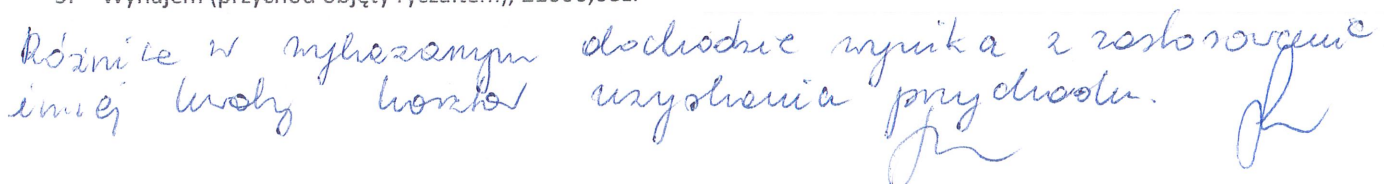 Różnice w wykazanym dochodzie wynika z zastosowanie
innej kwoty kosztów uzyskania przychodu.